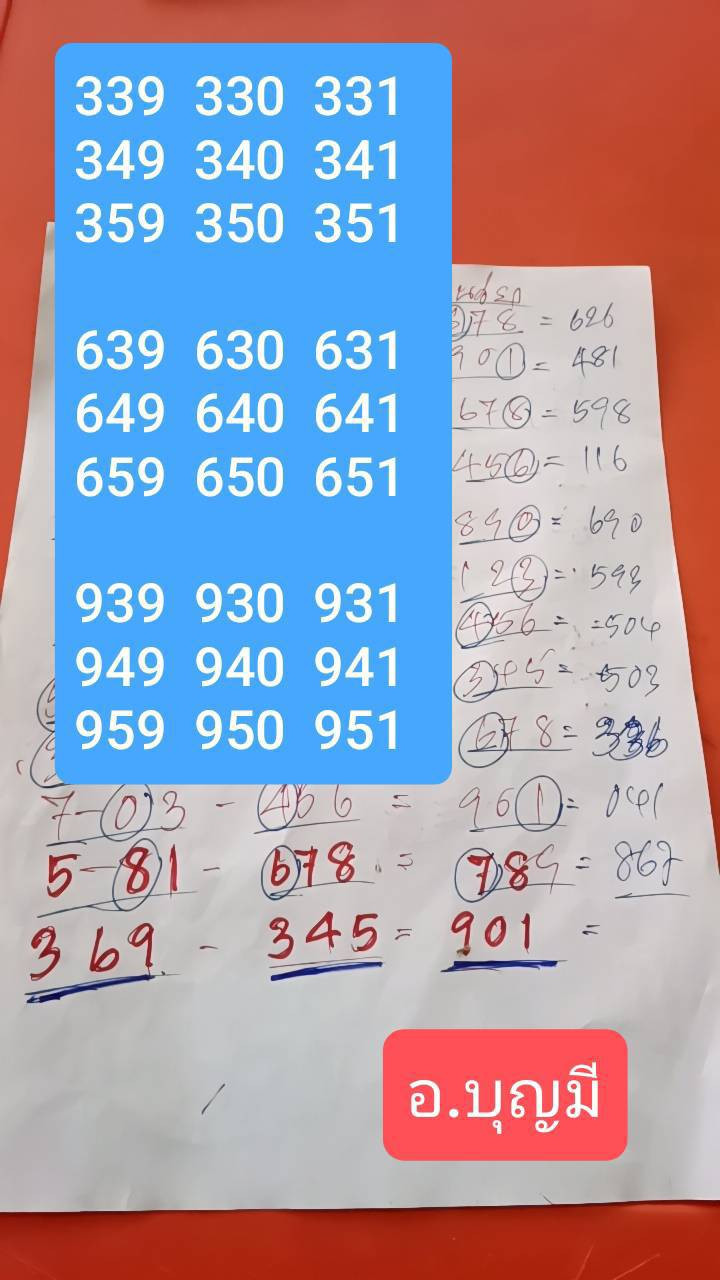 339 330 331
349 340 341
359 350 351
639 630 631
649 640 641
659 650 651
939 930 931
949 940 941
959 950 951
78 = 626
901 = 481
678 = 598
456 = 116
890 = 690
123 = 593
456 = =504
345 = 503
678 = 336
7-03 - 456 = 961 = 041
5-81 - 678 = 789 = 867
369 - 345 = 901 =
อ.บุญมี